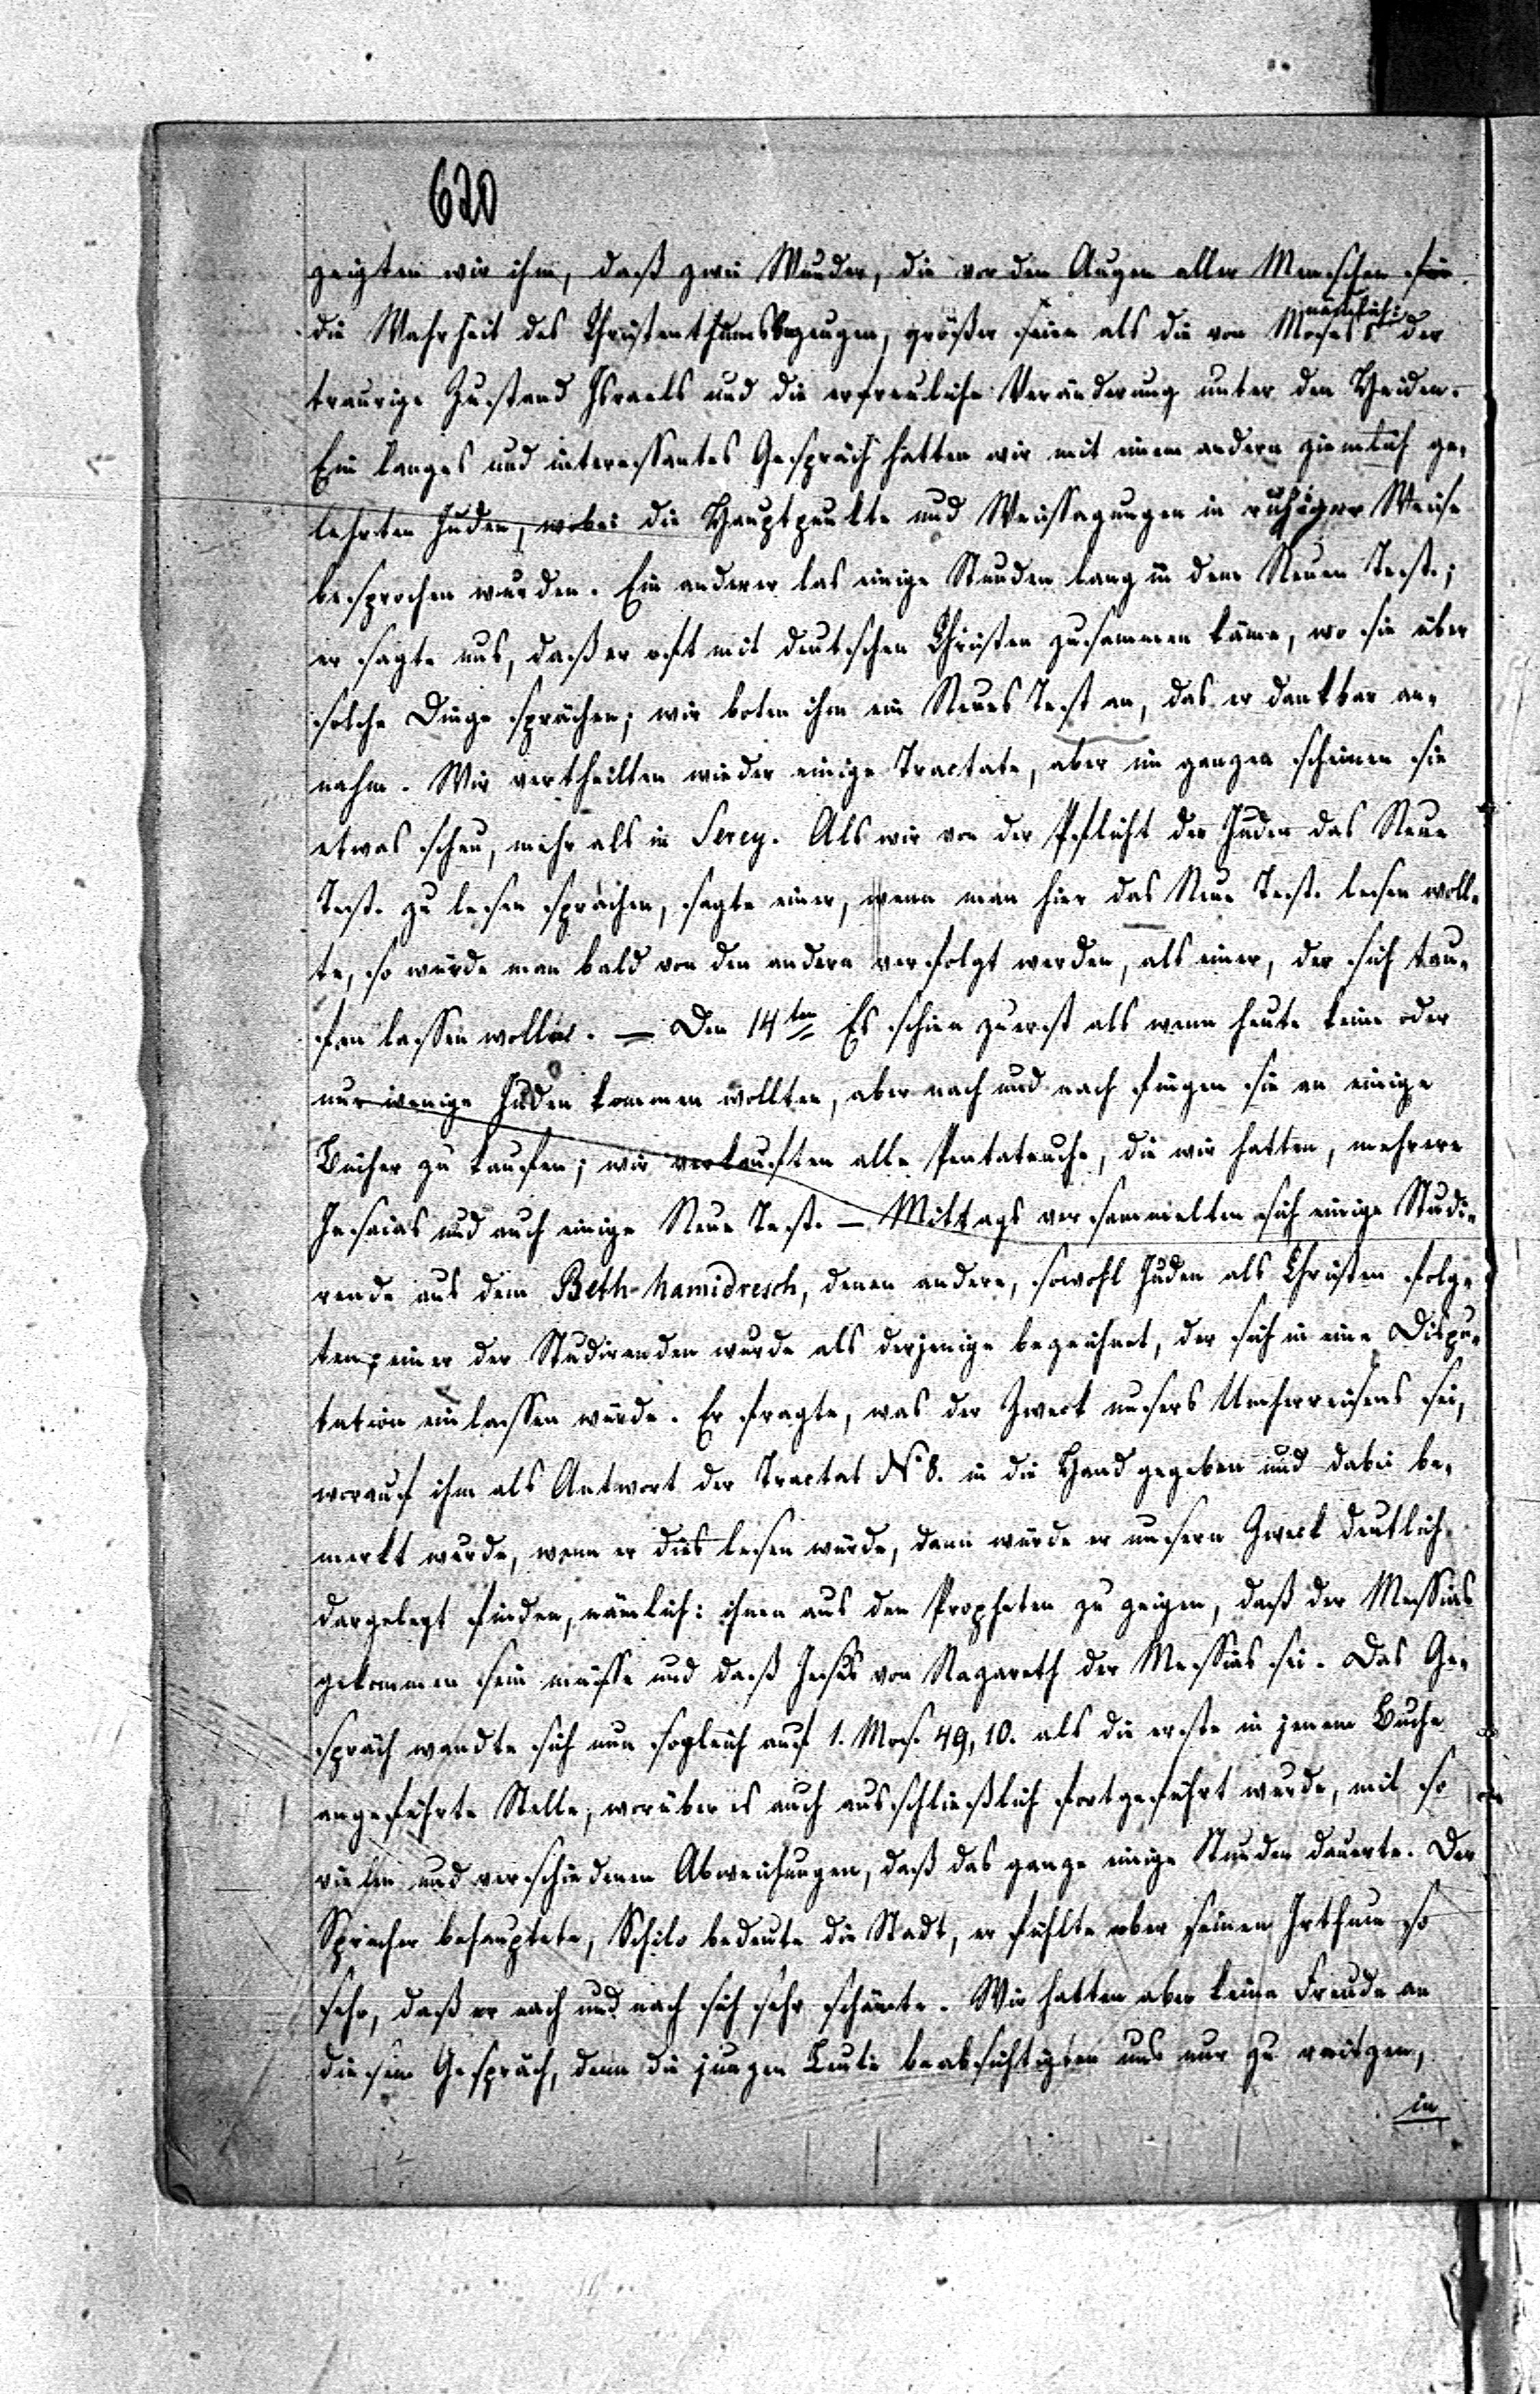 620
zeigten wir ihm, daß zwei Wunder, die vor den Augen aller Menschen für
die Wahrheit des Christenthums bezeugen, größer seien als die von Moses, nämlich: der
traurige Zustand Israels und die erfreuliche Veränderung unter den Heiden.
Ein langes und interessantes Gespräch hatten wir mit einem andern ziemlich ge-
lehrten Juden, wobei die Hauptpunkte und Weissagungen in ruhiger Weise
besprochen wurden. Ein anderer las einige Stunden lang in dem Neuen Test.;
er sagte uns, daß er oft mit deutschen Christen zusammen käme, wo sie über
solche Dinge sprächen; wir boten ihm ein Neues Test an, das er dankbar an-
nahm. Wir vertheilten wieder einige Tractate, aber im ganzen scheinen sie
etwas scheu, mehr als in Serey. Als wir von der Pflicht der Juden das Neue
Test. zu lesen sprachen, sagte einer, wenn man hier das Neue Test. lesen woll-
te, so würde man bald von den andern verfolgt werden, als einer, der sich tau-
fen lassen wolle. — Den 14ten Es schien zuerst als wenn heute keine oder
nur wenige Juden kommen wollten, aber nach und nach fingen sie an einige
Bücher zu kaufen; wir verkauften alle Pentateuche, die wir hatten, mehrere
Jesaias und auch einige Neue Test. — Mittags versammelten sich einige Studi-
rende aus dem Beth-hamidresch, denen andere, sowohl Juden als Christen folg-
ten; einer der Studirenden wurde als derjenige bezeichnet, der sich in eine Dispu-
tation einlassen würde. Er fragte, was der Zweck unsers Umherreisens sei,
worauf ihm als Antwort der Tractat No 8. in die Hand gegeben und dabei be-
merkt wurde, wenn er dies lesen würde, dann würde er unsern Zweck deutlich
dargelegt finden, nämlich: ihnen aus den Propheten zu zeigen, daß der Messias
gekommen sein müsse und daß Jesus von Nazareth der Messias sei. Das Ge-
spräch wandte sich nun sogleich auf 1. Mos. 49, 10. als die erste in jenem Buche
angeführte Stelle, worüber es auch ausschließlich fortgeführt wurde, mit so
vielen und verschiedenen Abweichungen, daß das ganze einige Stunden dauerte. Der
Sprecher behauptete, Schilo bedeute die Stadt, er fühlte aber seinen Irthum so
sehr, daß er nach und nach sich sehr schämte. Wir hatten aber keine Freude an
diesem Gespräch, denn die jungen Leute beabsichtigten uns nur zu reitzen,
in